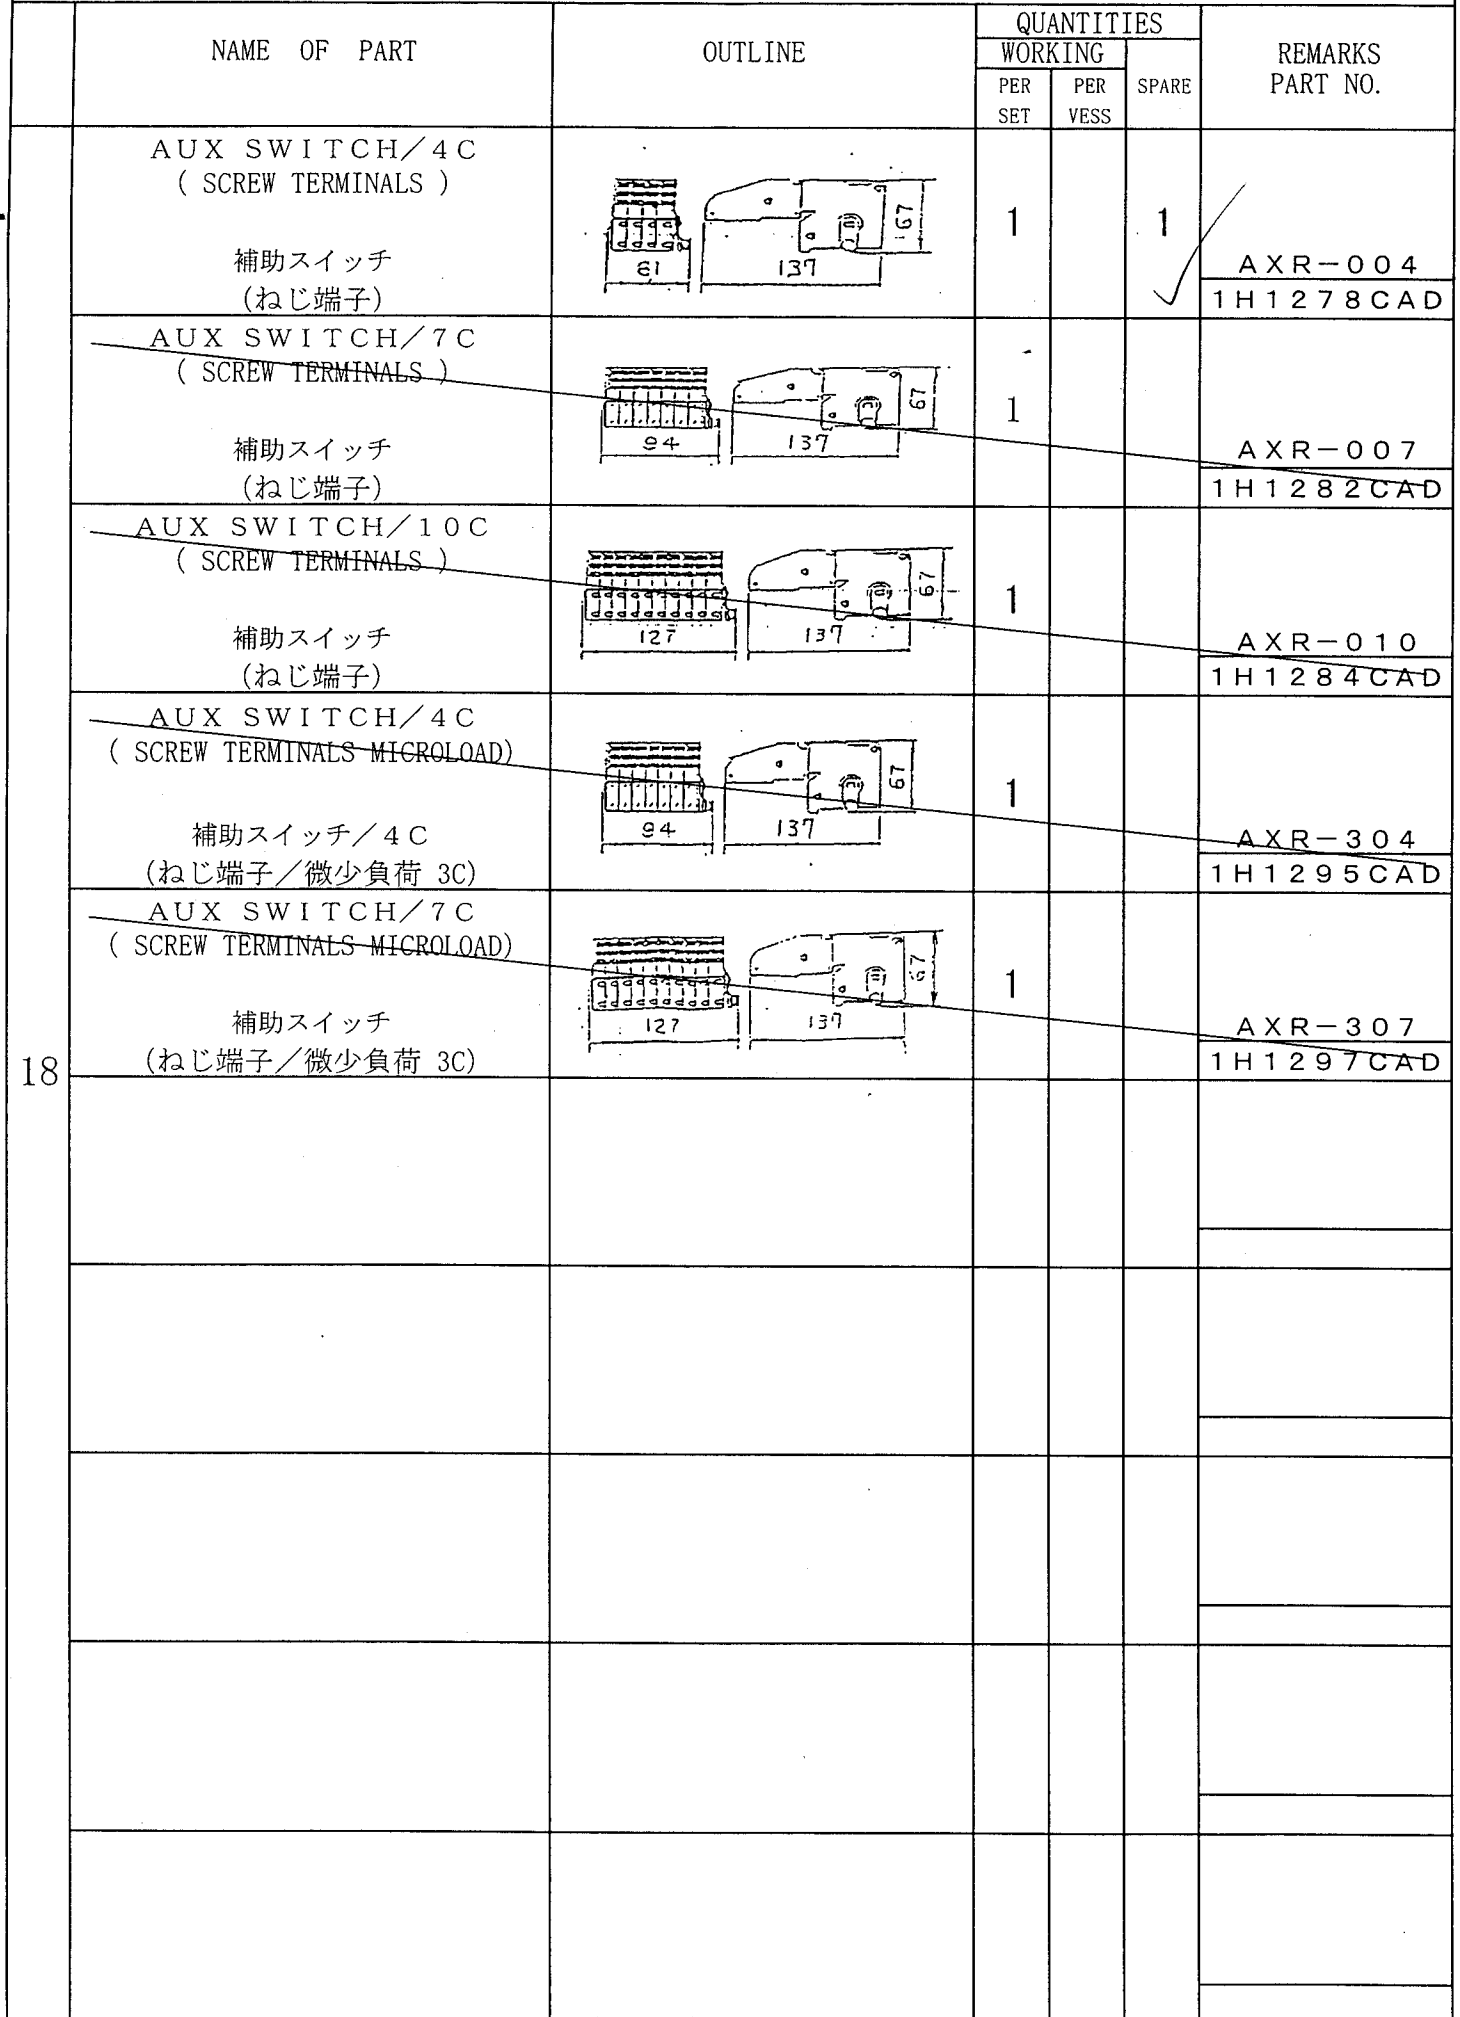 NAME OF PART
OUTLINE
QUANTITIES
WORKING
PER SET
PER VESS
SPARE
REMARKS
PART NO.
18
AUX SWITCH/4C
( SCREW TERMINALS )
補助スイッチ
(ねじ端子)
61
137
67
1
1
AXR-004
1H1278CAD
AUX SWITCH/7C
( SCREW TERMINALS )
補助スイッチ
(ねじ端子)
94
137
67
1
AXR-007
1H1282CAD
AUX SWITCH/10C
( SCREW TERMINALS )
補助スイッチ
(ねじ端子)
127
137
67
1
AXR-010
1H1284CAD
AUX SWITCH/4C
( SCREW TERMINALS MICROLOAD)
補助スイッチ/4C
(ねじ端子/微少負荷 3C)
94
137
67
1
AXR-304
1H1295CAD
AUX SWITCH/7C
( SCREW TERMINALS MICROLOAD)
補助スイッチ
(ねじ端子/微少負荷 3C)
127
137
67
1
AXR-307
1H1297CAD